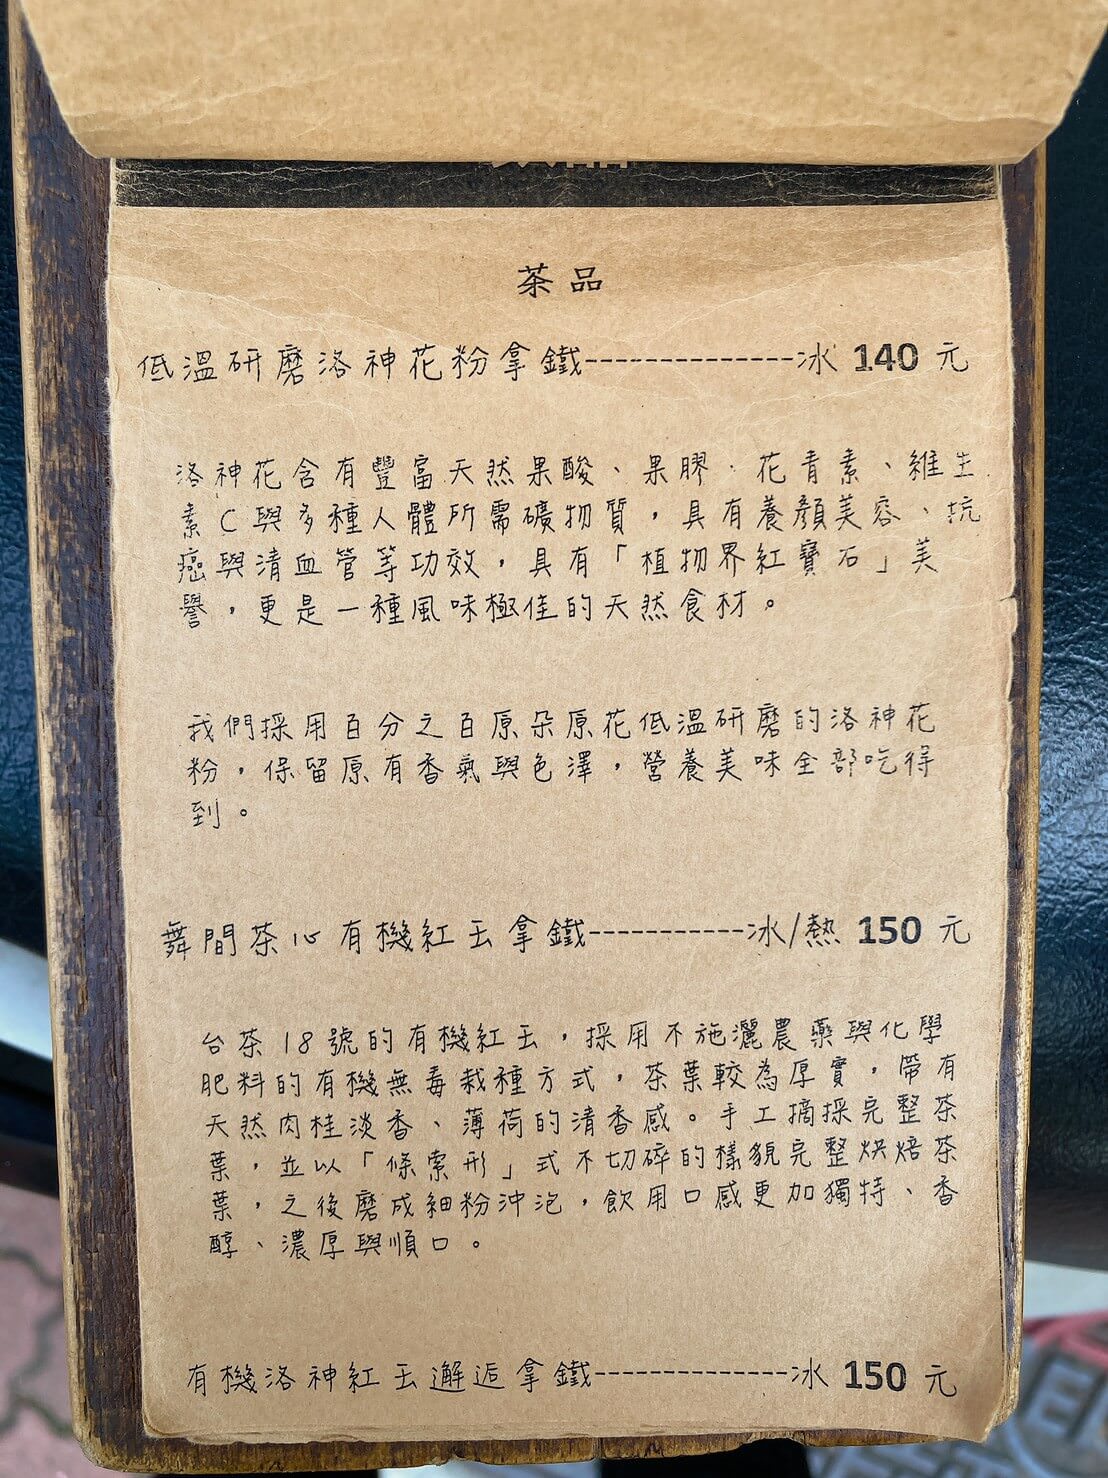 茶品
低溫研磨洛神花粉拿鐵--------------冰 140 元
洛神花含有豐富天然果酸、果膠、花青素、維生
素C與多種人體所需礦物質，具有養顏美容、抗
癌與清血管等功效，具有「植物界紅寶石」美
譽，更是一種風味極佳的天然食材。
我們採用百分之百原朵原花低溫研磨的洛神花
粉，保留原有香氣與色澤，營養美味全部吃得
到。
舞間茶心有機紅玉拿鐵-----------冰/熱 150 元
台茶18號的有機紅玉，採用不施灑農藥與化學
肥料的有機無毒栽種方式，茶葉較為厚實，帶有
天然肉桂淡香、薄荷的清香感。手工摘採完整茶
葉，並以「條索形」式不切碎的樣貌完整烘焙茶
葉，之後磨成細粉沖泡，飲用口感更加獨特、香
醇、濃厚與順口。
有機洛神紅玉邂逅拿鐵-------------冰 150 元